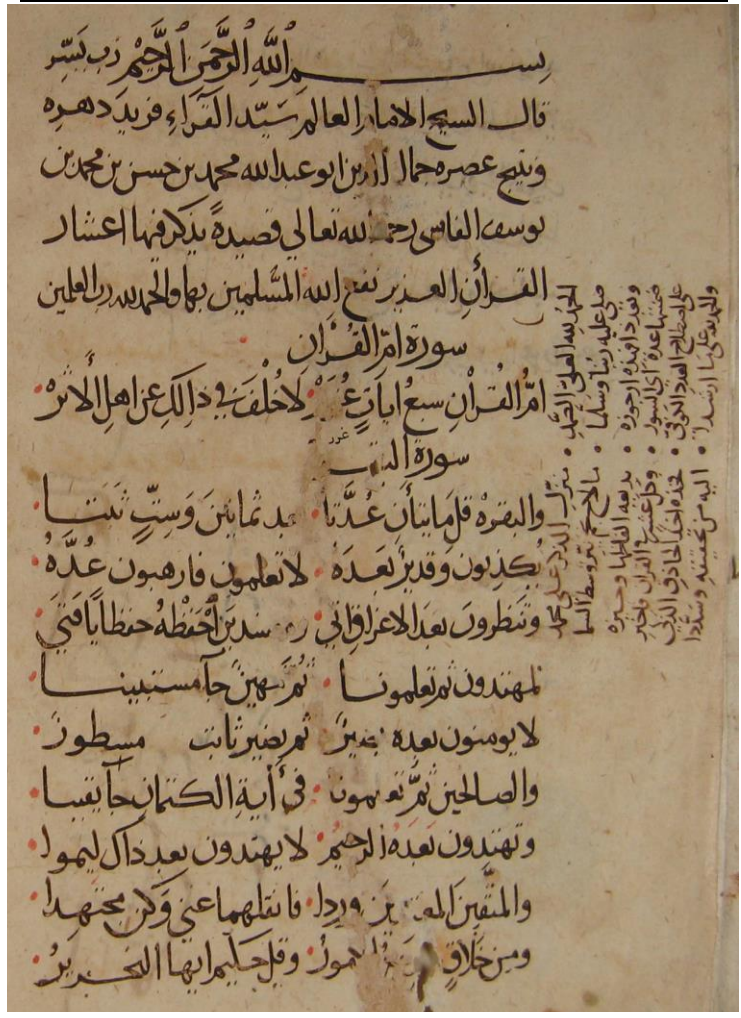 بسم الله الرحمن الرحيم رب يسر
قال الشيخ الامام العالم سيد القراء فريد دهره
ونتيج عصره جمال الدين ابو عبد الله محمد بن حسن بن محمد بن
يوسف الفاسي رحمه الله تعالى قصيدة يذكر فيها اعشار
القرأن العزيز نفع الله المسلمين بها والحمد لله رب العلمين
سورة ام القران
ام القرأن سبع ايات غرر لا خلف في ذالك عن اهل الاثر
سورة
والبقره قل مايتان عدتا بعد ثمانين وست ثبتا
يكذبون وقدير بعده لا تعلمون فارهبون عده
وتنظرون بعد الاغراق اتي احفظه حفظا يا فتي
لمهتدون ثم تعلمونا ثم مهين جآ مستبينا
لا يومنون بعده ثم نصير ثابت مسطور
والصالحين ثم في أية الكتمان جآ يقينا
وتهتدون بعده الرحيم لا يهتدون بعد ذاك
والمتقين فانقلهما عني وكن مجتهدا
ومن خلاق وقل حليم ايها النحرير
الحمد لله العلي الصمد منزل الذكر على محمد
صلى عليه ربنا وسلما ما لاح نجم
وبعد فهذه ارجوزه بديعه الفاظها وجيزه
ضمنتها عدة اي السور
على اصطلاح العدد الكوفي
والحمد لله على ما ارشدا اليه من تحقيقه وسددا